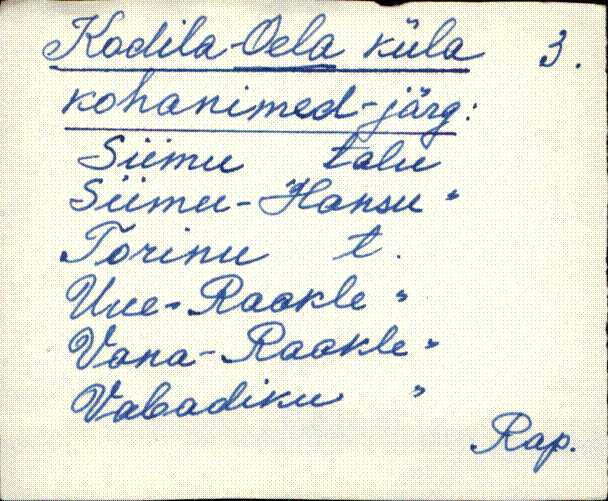 Kodila-Oela küla 3.
kohanimed-järg:
Siimu talu
Siimu-Hansu "
Torinu t.
Uue-Raakle "
Vana-Raakle "
Vabadiku "
Rap.